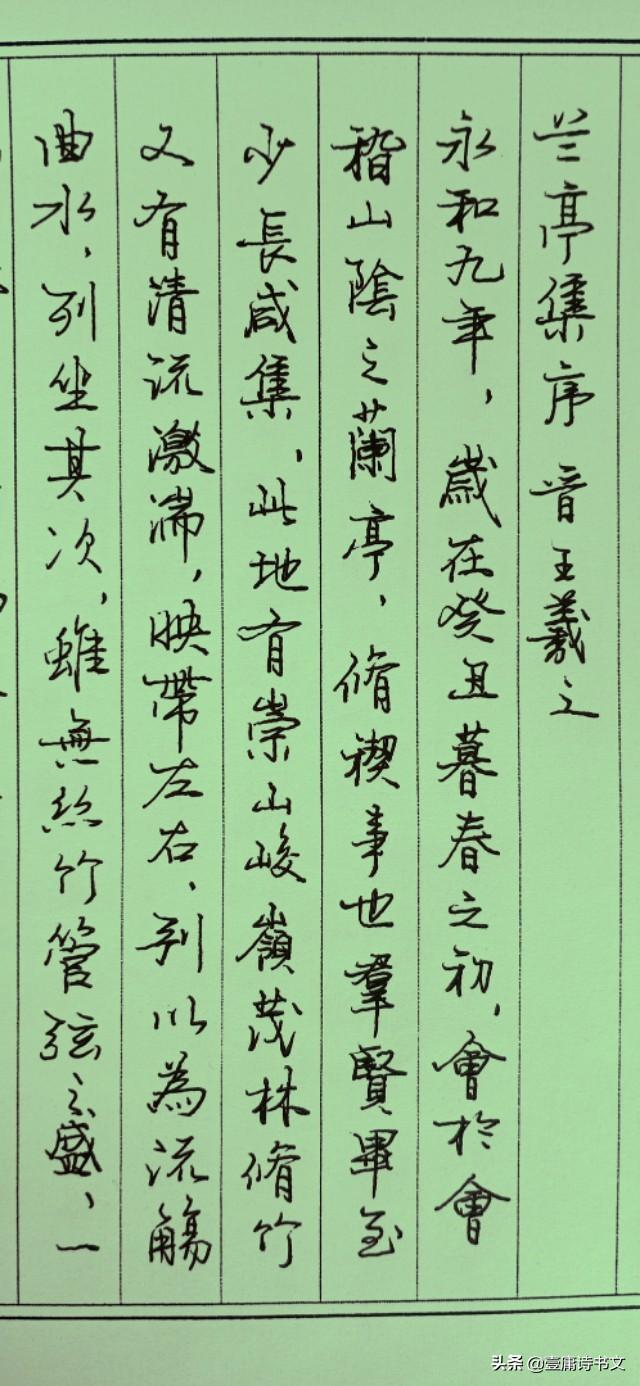 兰亭集序 晋王羲之
永和九年，歲在癸丑暮春之初，會於會
稽山陰之蘭亭，脩禊事也羣賢畢至
少長咸集，此地有崇山峻嶺茂林脩竹
又有清流激湍，映帶左右，列以為流觴
曲水，列坐其次，雖無絲竹管弦之盛，一
头条 @壹庸诗书文